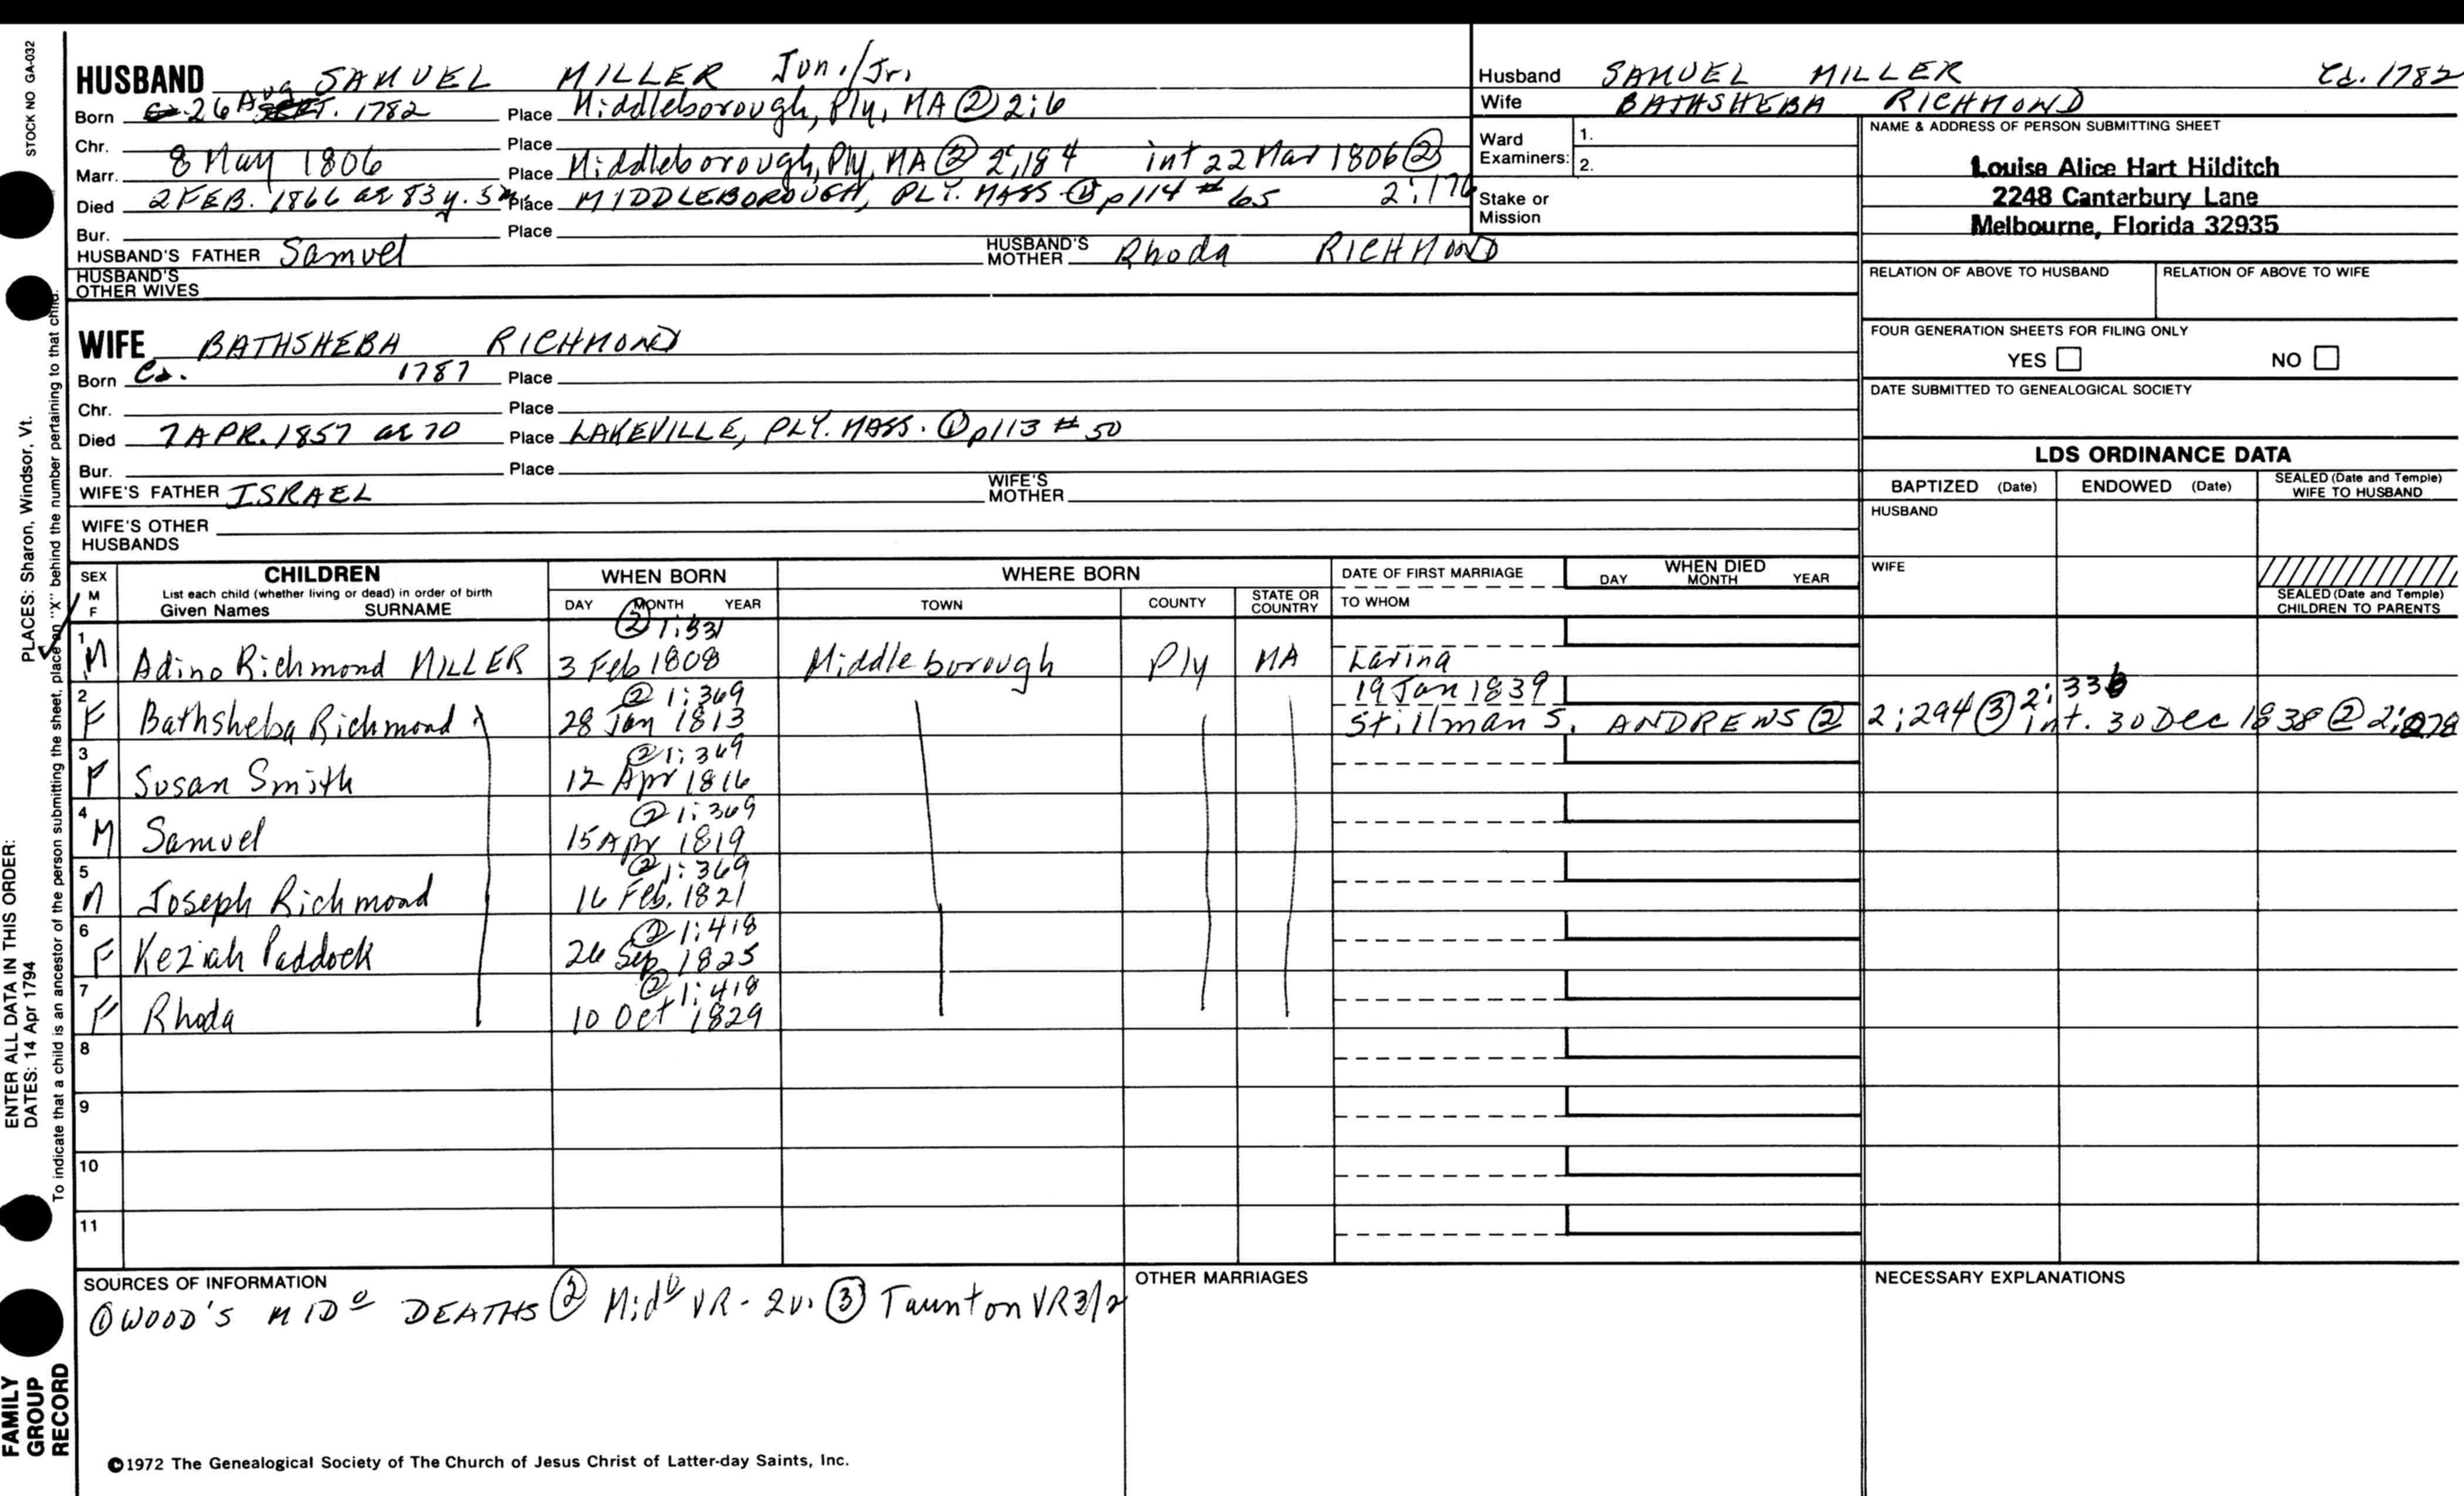 STOCK NO GA-032
PLACES: Sharon, Windsor, Vt.
ENTER ALL DATA IN THIS ORDER:
DATES: 14 Apr 1794
To indicate that a child is an ancestor of the person submitting the sheet, place an "X" behind the number pertaining to that child.
FAMILY
GROUP
RECORD
HUSBAND SAMUEL MILLER Jun./Jr.
Born 26 Aug 1782 Place Middleborough, Ply, MA ② 2:6
Chr. Place
Marr. 8 May 1806 Place Middleborough, Ply, MA ② 2:184 int 22 Mar 1806 ②
2:176
Died 2 FEB. 1866 ae 83 y. 5 m. Place MIDDLEBOROUGH, PLY. MASS. ① p114 # 65
Bur. Place
HUSBAND'S FATHER Samuel HUSBAND'S MOTHER Rhoda RICHMOND
HUSBAND'S
OTHER WIVES
WIFE BATHSHEBA RICHMOND
Born Ca. 1787 Place
Chr. Place
Died 7 APR. 1857 ae 70 Place LAKEVILLE, PLY. MASS. ① p113 # 50
Bur. Place
WIFE'S FATHER ISRAEL WIFE'S MOTHER
WIFE'S OTHER
HUSBANDS
Husband SAMUEL MILLER Ca. 1782
Wife BATHSHEBA RICHMOND
Ward
Examiners: 1.
2.
Stake or
Mission
NAME & ADDRESS OF PERSON SUBMITTING SHEET
Louise Alice Hart Hilditch
2248 Canterbury Lane
Melbourne, Florida 32935
RELATION OF ABOVE TO HUSBAND RELATION OF ABOVE TO WIFE
FOUR GENERATION SHEETS FOR FILING ONLY
YES NO
DATE SUBMITTED TO GENEALOGICAL SOCIETY
LDS ORDINANCE DATA
BAPTIZED (Date) ENDOWED (Date) SEALED (Date and Temple) WIFE TO HUSBAND
HUSBAND
WIFE
SEALED (Date and Temple)
CHILDREN TO PARENTS
SEX M F CHILDREN WHEN BORN WHERE BORN DATE OF FIRST MARRIAGE WHEN DIED
List each child (whether living or dead) in order of birth
Given Names SURNAME DAY MONTH YEAR TOWN COUNTY STATE OR COUNTRY TO WHOM DAY MONTH YEAR
② 1:331
1 M Adino Richmond MILLER 3 Feb 1808 Middleborough Ply MA Lavina
② 1:369 19 Jan 1839
2 F Bathsheba Richmond 28 Jan 1813 Stillman S. ANDREWS ② 2:294 ③ 2:336 int. 30 Dec 1838 ② 2:278
② 1:369
3 F Susan Smith 12 Apr 1816
② 1:369
4 M Samuel 15 Apr 1819
② 1:369
5 M Joseph Richmond 16 Feb. 1821
② 1:418
6 F Keziah Paddock 26 Sep 1825
② 1:418
7 F Rhoda 10 Oct 1829
8
9
10
11
SOURCES OF INFORMATION
① WOOD'S MIDº DEATHS ② Midº VR - 2v. ③ Taunton VR 3/2
OTHER MARRIAGES
NECESSARY EXPLANATIONS
©1972 The Genealogical Society of The Church of Jesus Christ of Latter-day Saints, Inc.